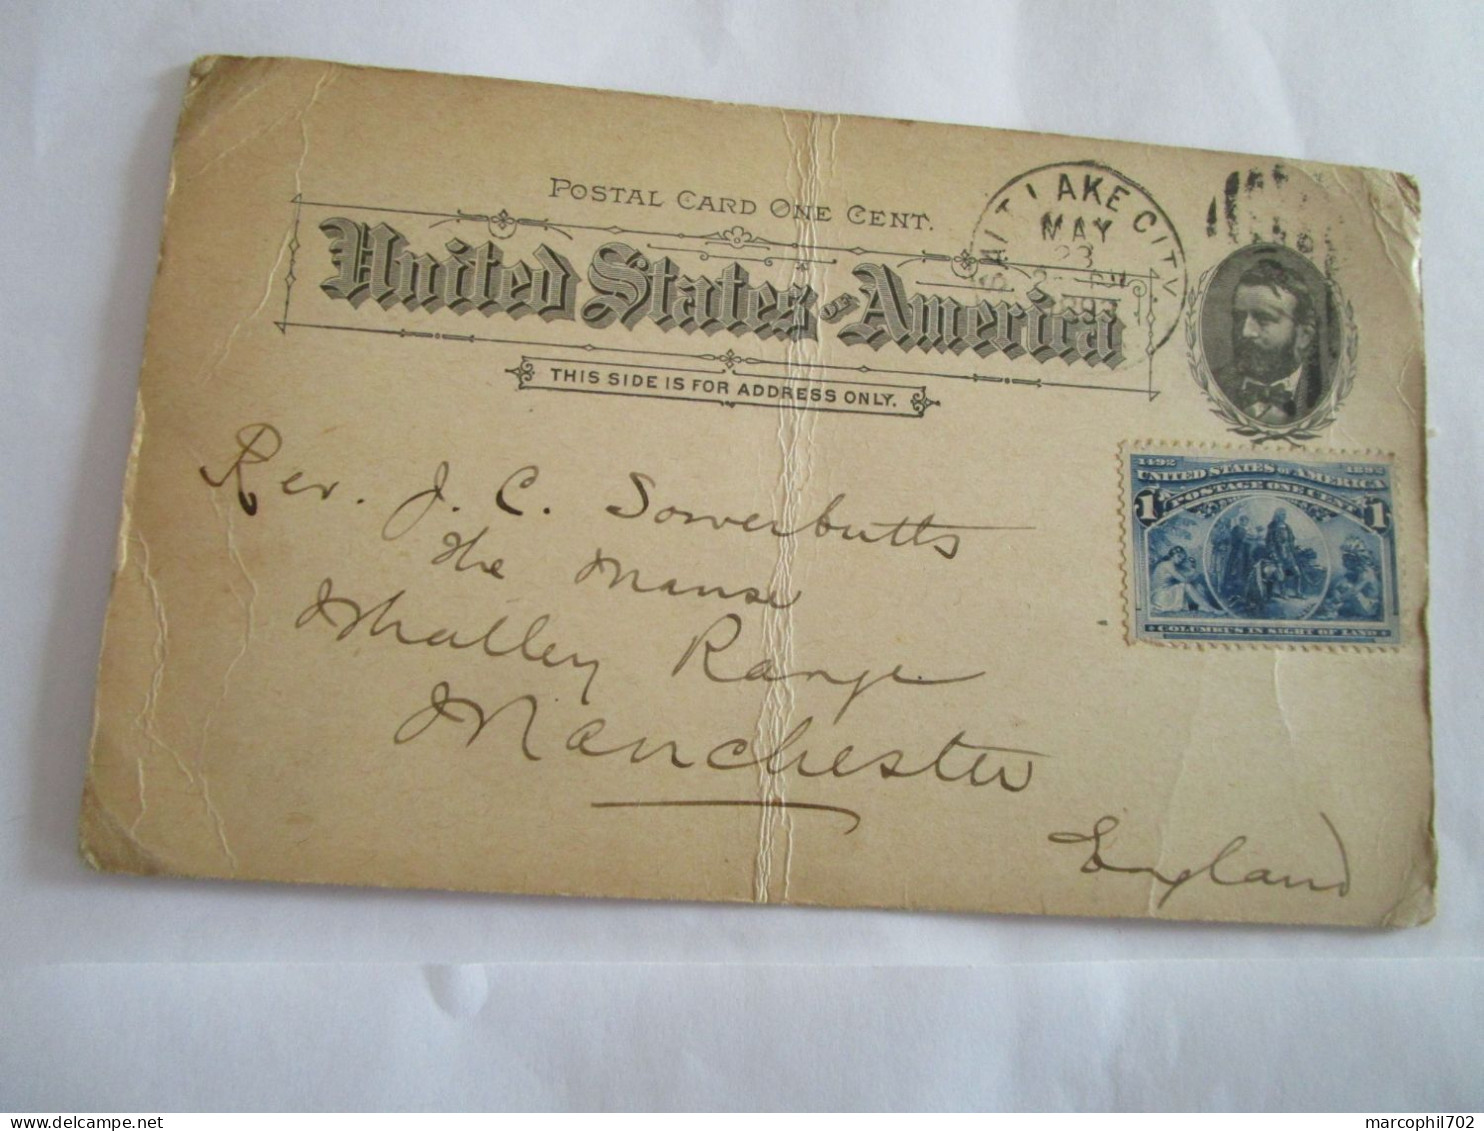 POSTAL CARD ONE CENT.
United States of America
THIS SIDE IS FOR ADDRESS ONLY.
SALT LAKE CITY
MAY
23
PM
1893
1492 1892
UNITED STATES OF AMERICA
POSTAGE ONE CENT
1 1
COLUMBUS IN SIGHT OF LAND
Rev. J. C. Sowerbutts
The Manse
Whalley Range
Manchester
England
marcophil702